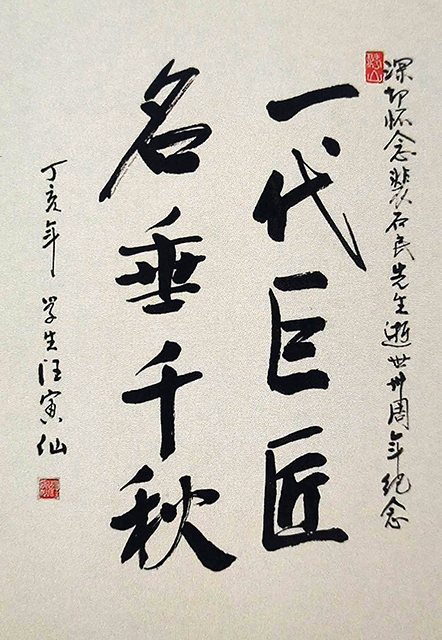 深切怀念裴石民先生逝世卅周年纪念
一代巨匠
名垂千秋
丁亥年 学生汪寅仙